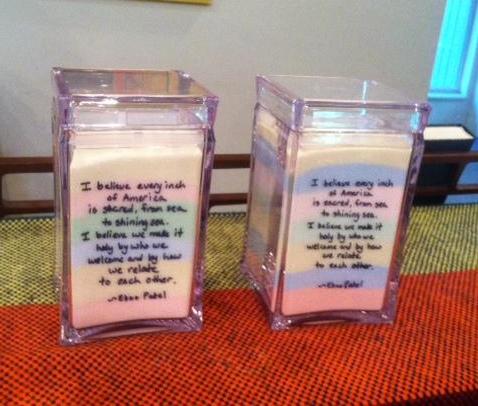 I believe every inch
of America
is sacred, from sea
to shining sea.
I believe we make it
holy by who we
welcome and by how
we relate
to each other.
~Eboo Patel
I believe every inch
of America
is sacred, from sea
to shining sea.
I believe we make it
holy by who we
welcome and by how
we relate
to each other.
~Eboo Patel